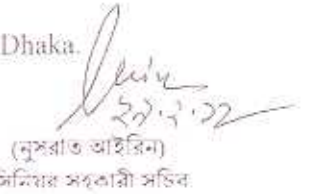 Dhaka.
২৯.২.১২
(নুসরাত আইরিন)
সিনিয়র সহকারী সচিব